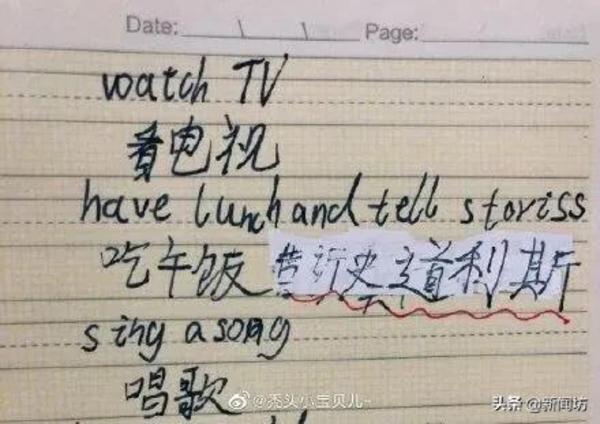 Date: Page:
watch TV
看电视
have lunch and tell storiss
吃午饭 史道利斯
sing a song
唱歌
@秃头小宝贝儿~
头条 @新闻坊